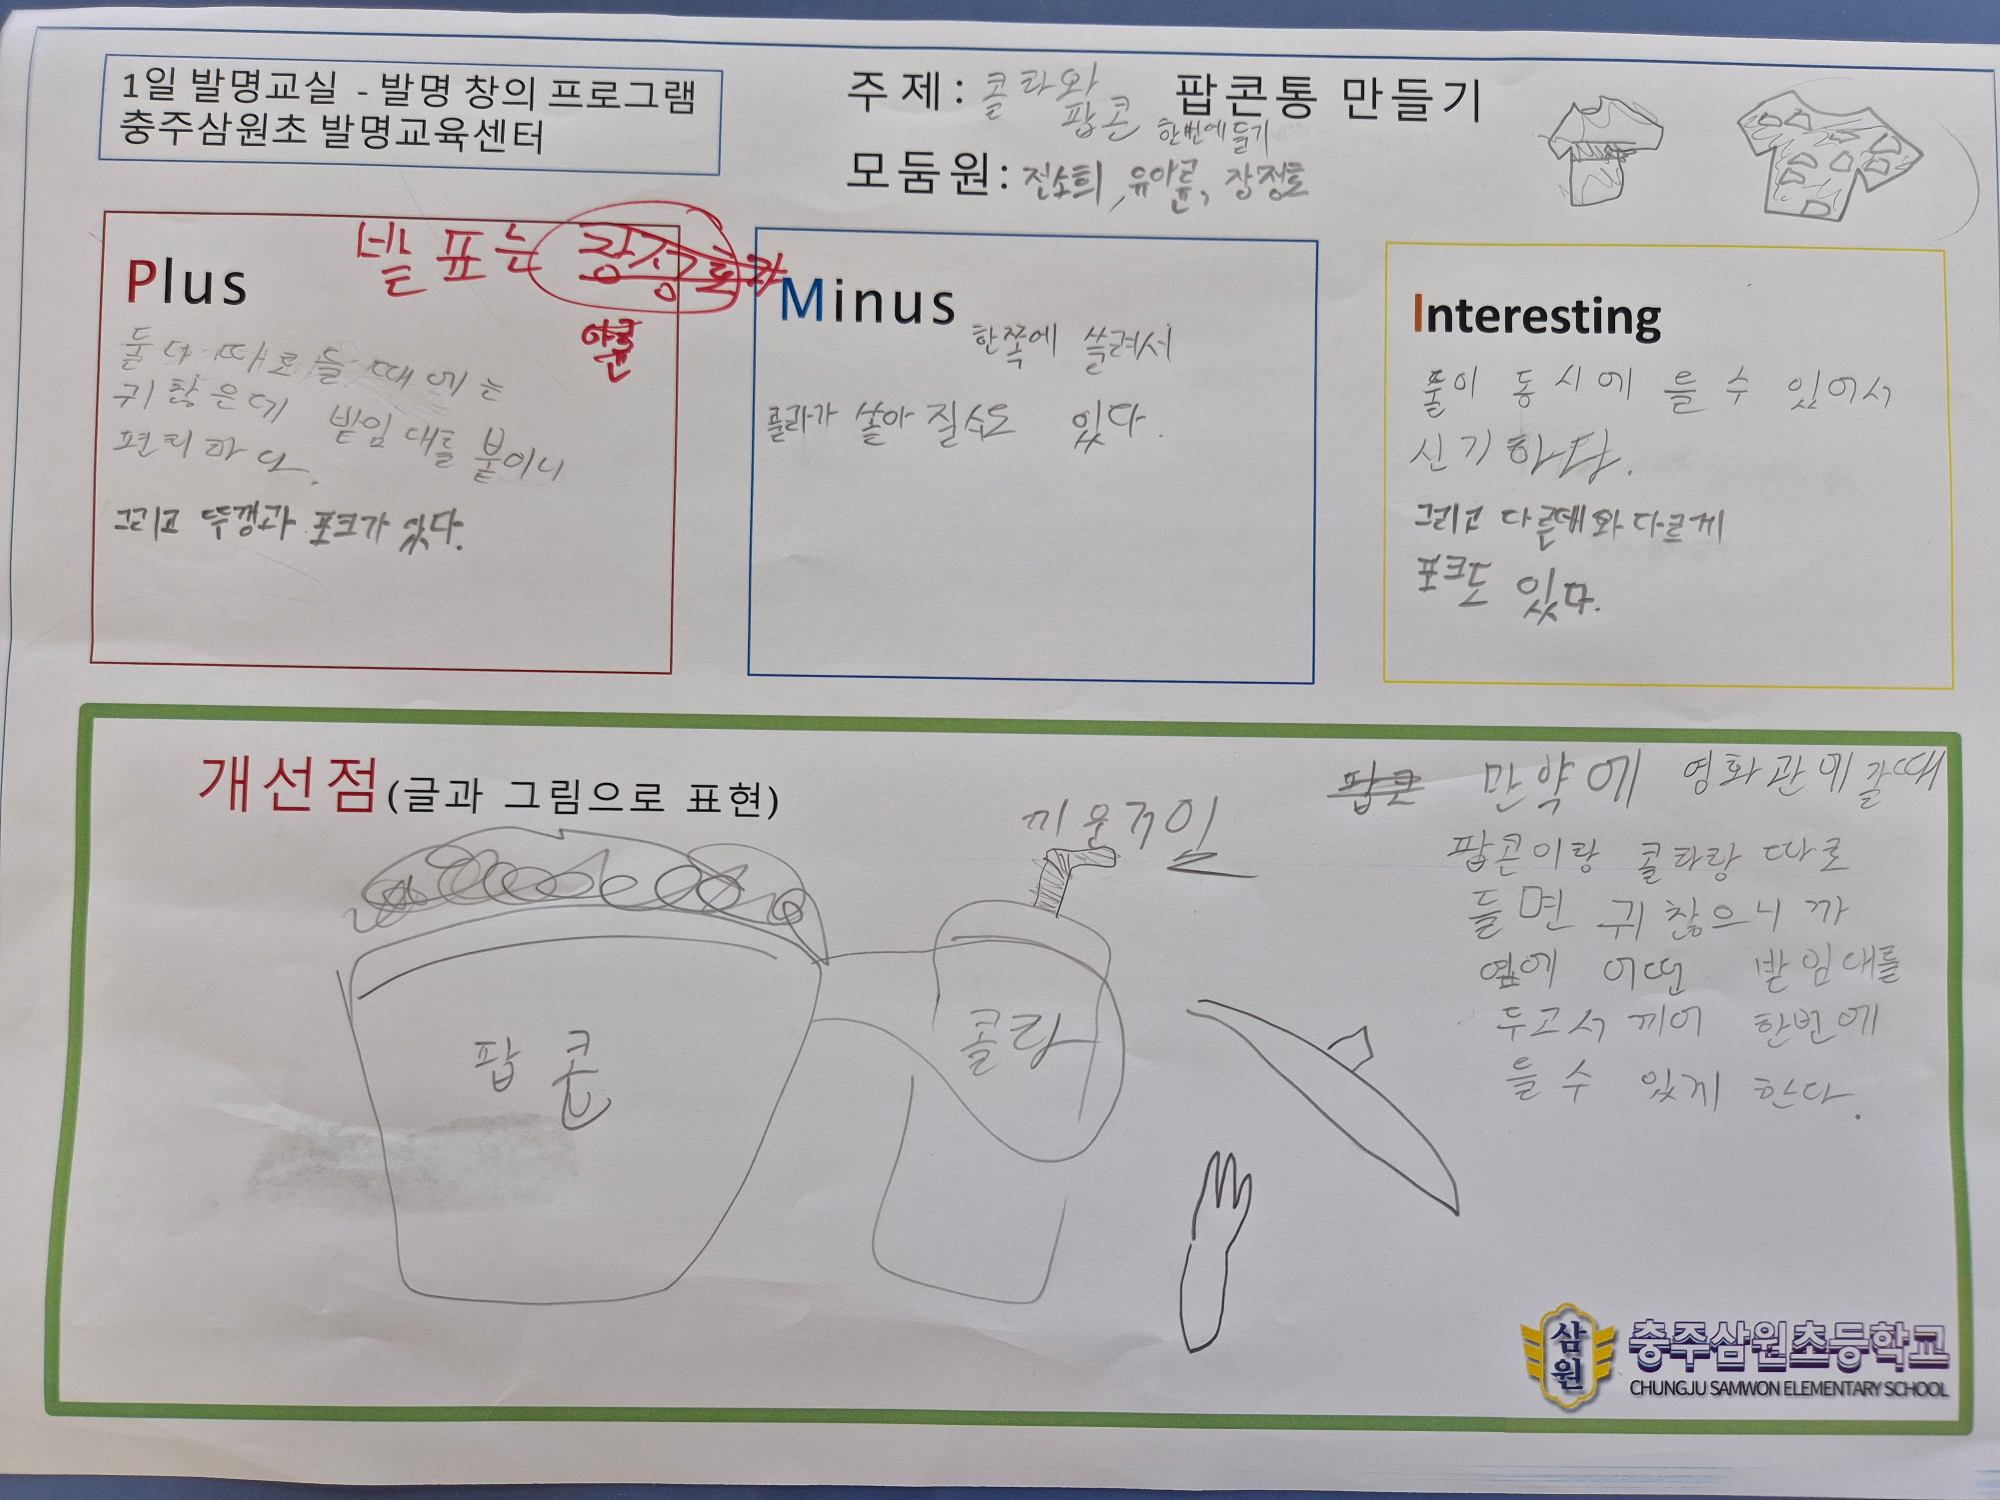 1일 발명교실 - 발명 창의 프로그램
충주삼원초 발명교육센터
주제: 콜라와 팝콘 한번에 들기 팝콘통 만들기
모둠원: 진소희, 유아륜, 장정호
발표는 장정호가
아륜
Plus
둘 다 따로 들 때에는
귀찮은데 받임대를 붙이니
편리하다.
그리고 뚜껑과 포크가 있다.
Minus
한쪽에 쏠려서
콜라가 쏟아 질수도 있다.
Interesting
둘이 동시에 들 수 있어서
신기하다.
그리고 다른데와 다르게
포크도 있다.
개선점(글과 그림으로 표현)
팝콘 만약에 영화관에 갈때
팝콘이랑 콜라랑 따로
들면 귀찮으니까
옆에 어떤 받임대를
두고서 끼어 한번에
들 수 있게 한다.
끼운거임
팝콘
콜라
삼원
충주삼원초등학교
CHUNGJU SAMWON ELEMENTARY SCHOOL